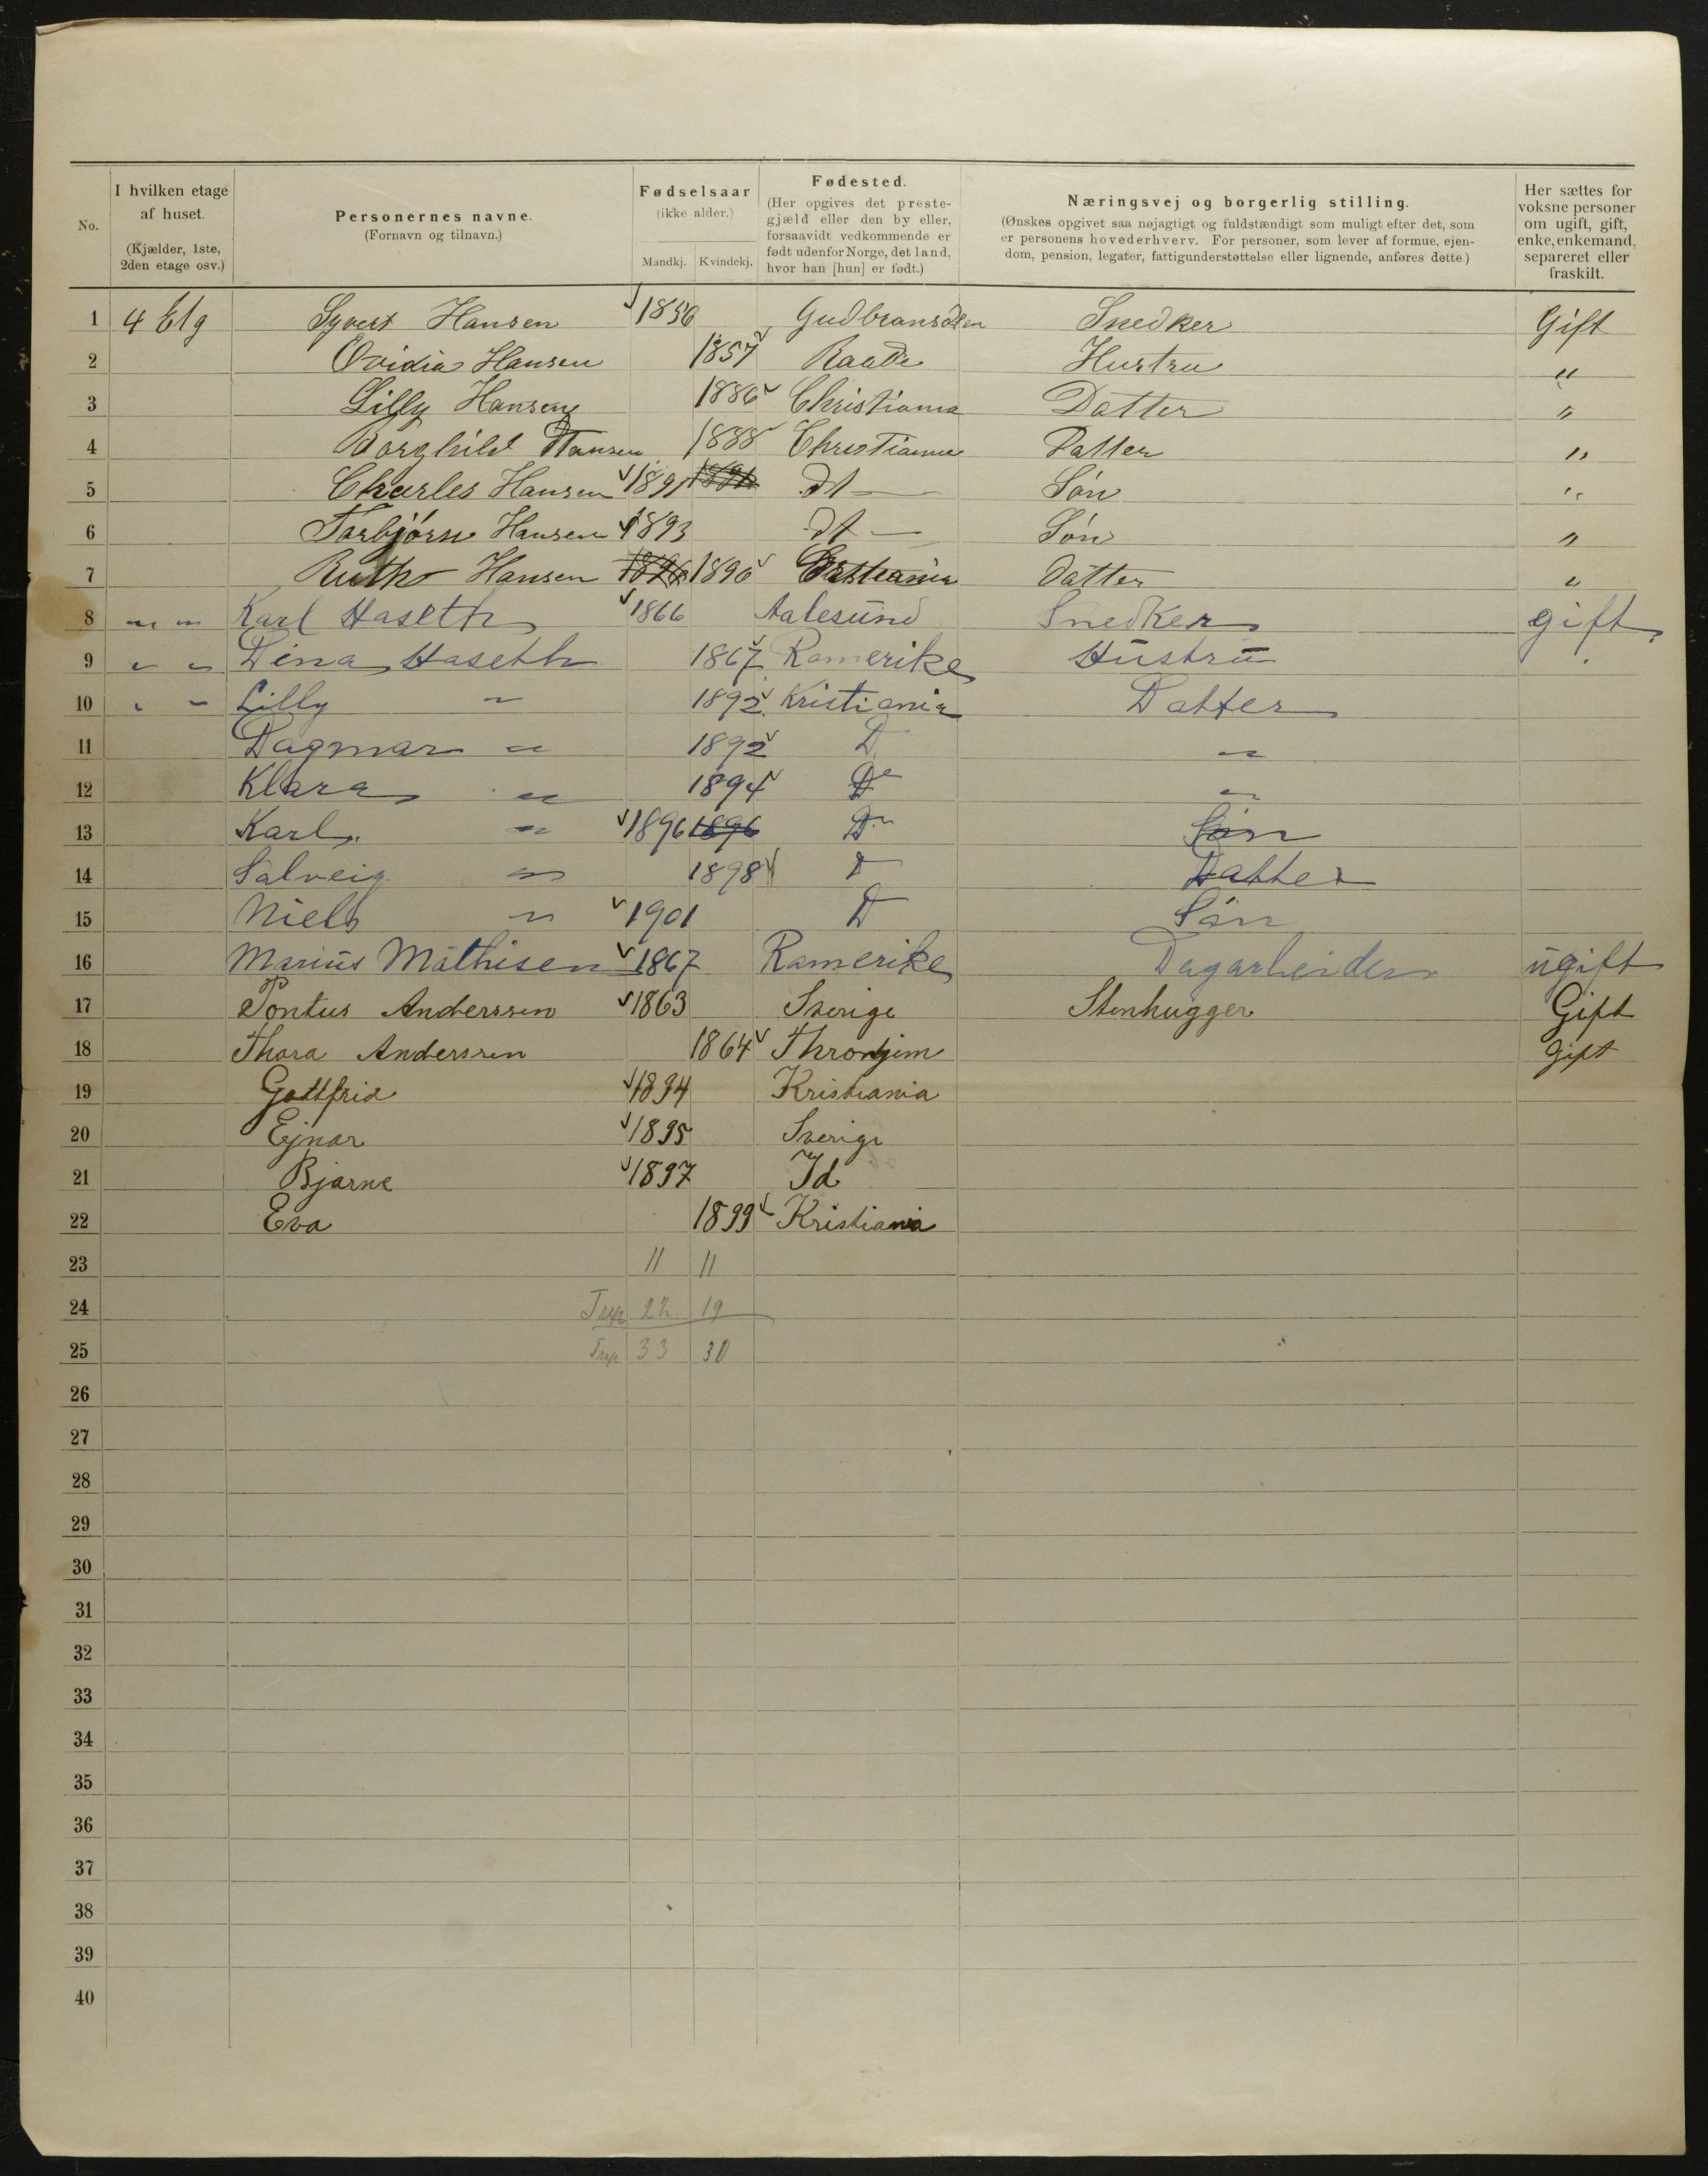 No.
I hvilken etage af huset.
(Kjælder, 1ste, 2den etage osv.)
Personernes navne.
(Fornavn og tilnavn.)
Fødselsaar
(ikke alder.)
Mandkj. Kvindekj.
Fødested.
(Her opgives det preste-
gjæld eller den by eller,
forsaavidt vedkommende er
født udenfor Norge, det land,
hvor han [hun] er født.)
Næringsvej og borgerlig stilling.
(Ønskes opgivet saa nøjagtigt og fuldstændigt som muligt efter det, som
er personens hovederhverv. For personer, som lever af formue, ejen-
dom, pension, legater, fattigunderstøttelse eller lignende, anføres dette.)
Her sættes for
voksne personer
om ugift, gift,
enke, enkemand,
separeret eller
fraskilt.
1 4 Etg Syvert Hansen 1856 Gudbransdalen Snedker Gift
2 Ovidia Hansen 1857 Raade Hustru "
3 Lilly Hansen 1886 Christiania Datter "
4 Borghild Hansen 1888 Christiania Datter "
5 Charles Hansen 1891 dt — Søn "
6 Torbjørn Hansen 1893 dt — Søn "
7 Ruth Hansen 1896 1896 Datter "
8 " " Karl Haseth 1866 Aalesund Snedker gift
9 " " Dina Haseth 1867 Romerike Hustru "
10 " " Lilly " 1892 Kristiania Datter
11 Dagmar " 1892 D "
12 Klara " 1894 Do "
13 Karl " 1896 1896 Do Søn
14 Solveig " 1898 D Datter
15 Niels " 1901 D Søn
16 Marius Mathisen 1867 Romerike Dagarbeider ugift
17 Pontus Anderssen 1863 Sverige Stenhugger Gift
18 Thora Anderssen 1864 Thronjem Gift
19 Gottfrid 1894 Kristiania
20 Ejnar 1895 Sverige
21 Bjarne 1897 Id
22 Eva 1899 Kristiania
23 11 11
24 22 19
25 33 30
26
27
28
29
30
31
32
33
34
35
36
37
38
39
40